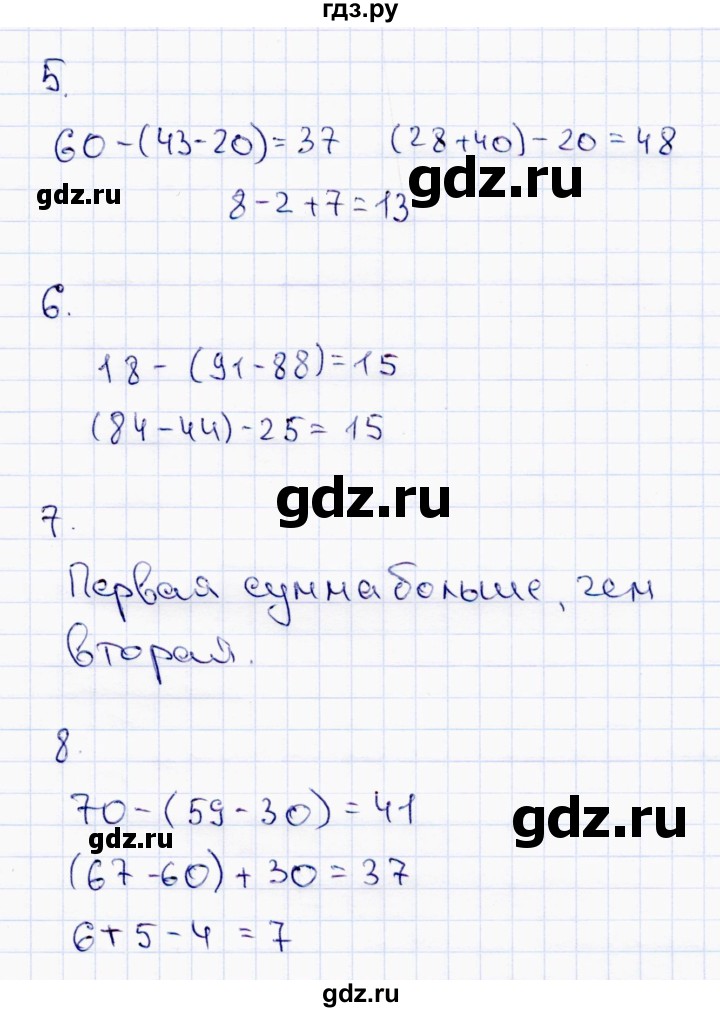 гдз.ру
5.
60-(43-20)=37 (28+40)-20=48
gdz.ru gdz.ru
8-2+7=13
6.
18-(91-88)=15
(84-44)-25=15
gdz.ru
7.
Первая сумма больше, чем
вторая.
8.
70-(59-30)=41
gdz.ru gdz.ru
(67-60)+30=37
6+5-4=7
gdz.ru